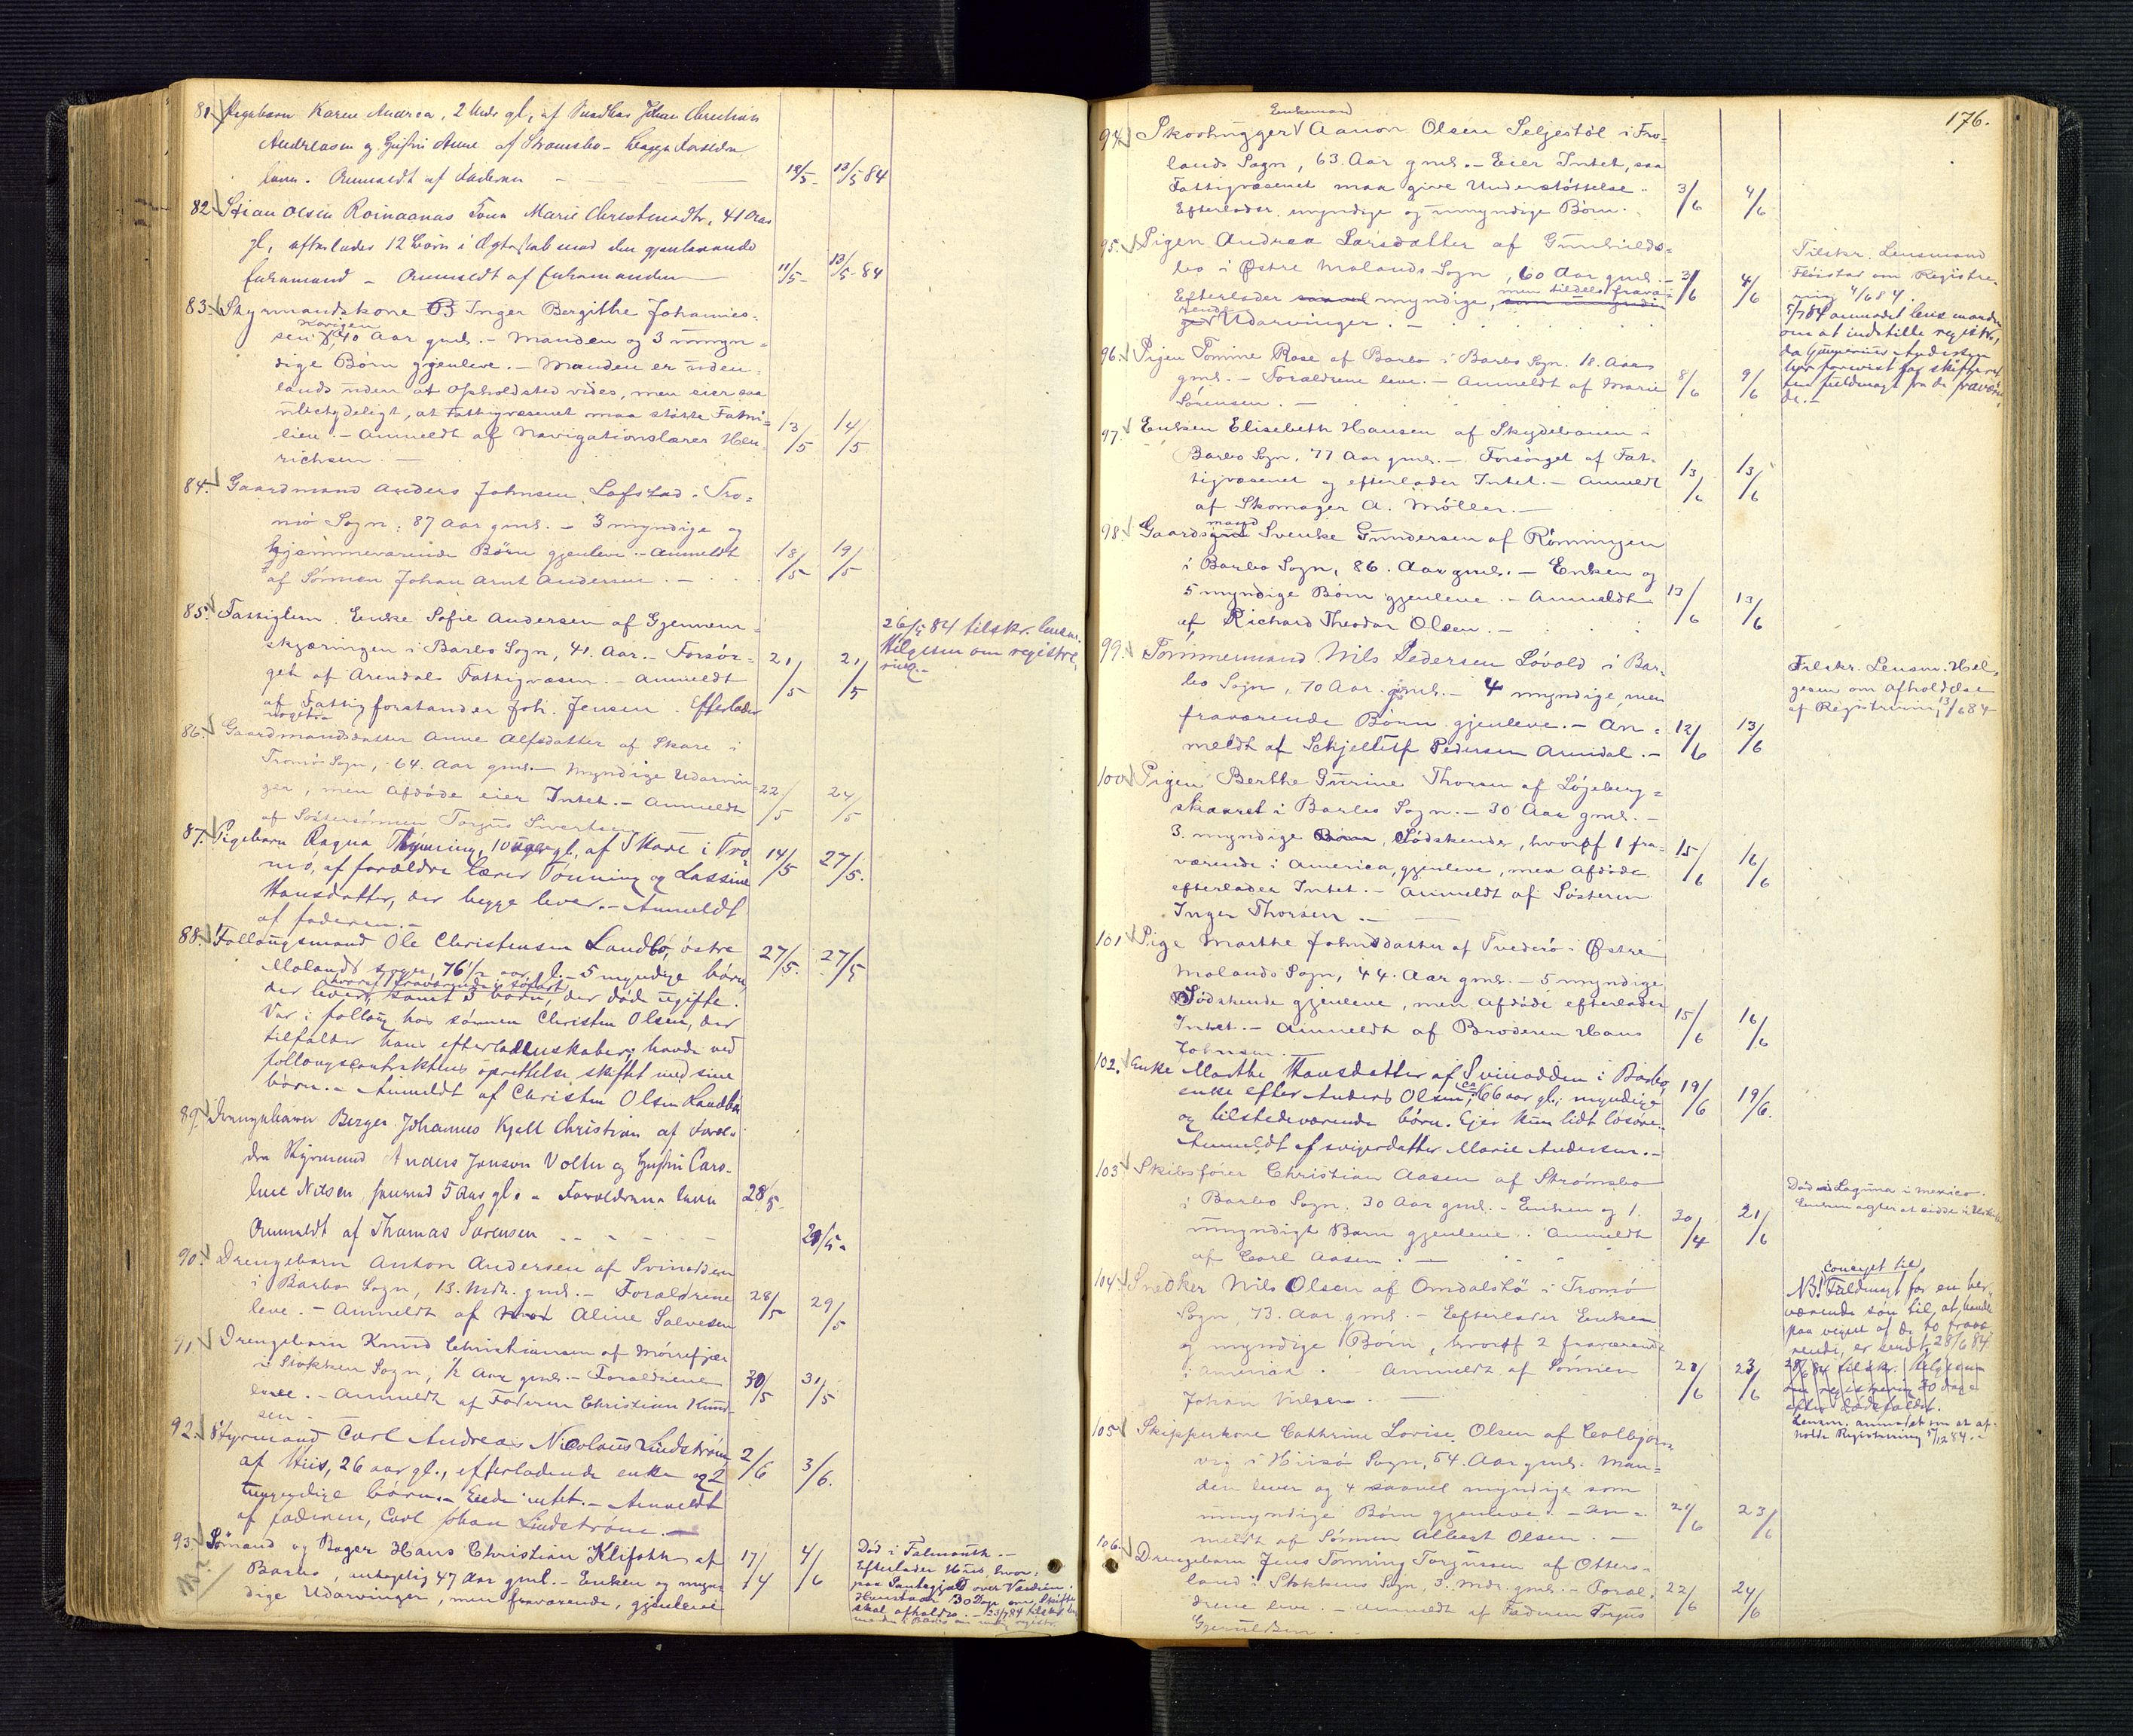 81. Pigebarn Karen Andrea, 2 Mdr gl, af Johan Christian
Andreasen og Hustru Anne af Strømsbo - begge Forældre
leve. Anmeldt af Faderen 12/5 13/5 84
82 Stian Olsen Roinaanas Kona Marie Christensdtr, 41 Aar
gl, efterlader 12 Børn i Ægteskab med den gjenlevende
Enkemand - Anmeldt af Enkemanden 11/5 13/5 84
83. Styrmandskone Inger Bergithe Johannes-
sen, 40 Aar gml. - Manden og 3 umyn-
dige Børn gjenleve. - Manden er uden-
lands uden at Opholdsted vides, men eier saa
ubetydeligt, at Fattigvæsenet maa støtte Fami-
lien. - Anmeldt af Navigationslærer Hen- 13/5 14/5
richsen. -
84. Gaardmand Anders Johnsen Lofstad i Tro-
mø Sogn, 87 Aar gml. - 3 myndige og
hjemmeværende Børn gjenleve. - Anmeldt 18/5 19/5
af Sønnen Johan Arnt Andersen. -
85. Fattiglem Enke Sofie Andersen af Gjennem-
skjæringen i Barbo Sogn, 41. Aar. - Forsør- 21/5 21/5
get af Arendals Fattigvæsen. - Anmeldt
af Fattigforstander Joh. Jensen. Efterlader
noget
26/5 84 tilskr. lensm.
Helgesen om registre-
ring -
86. Gaardmandsdatter Anne Alfsdatter af Skare i
Tromø Sogn, 64. Aar gml. - Myndige Udarvin-
ger, men Afdøde eier Intet. - Anmeldt 22/5 24/5
af Søstersønnen Torjus Sivertsen
87. Pigebarn Ragna Tønning, 10 uger gl, af Skare i Tro- 14/5 27/5.
mø, af forældre lærer Tønning og Lassine
Hansdatter, der begge lever. - Anmeldt
af faderen. -
88. Follaugsmand Ole Christensen Landbø, østre 27/5. 27/5
Molands sogn, 76 1/2 aar gl. - 5 myndige børn,
hvoraf 1 fraværende i søfart
der lever, samt 3 børn, der døde ugifte.
Var i follaug hos sønnen Christen Olsen, der
tilfalder hans efterladenskaber; havde ved
follaugscontraktens oprettelse skiftet med sine
børn. - Anmeldt af Christen Olsen Landbø
89. Drengebarn Berger Johannes Kjell Christian af Foræl-
dre Styrmand Anders Jonson Volter og Hustru Caro-
line Nilsen 5 Aar gl. - Forældrene leve 28/5
Anmeldt af Thomas Sørensen 29/5.
90. Drengebarn Anton Andersen af Svinodden
i Barbo Sogn, 13. Mdr. gml. - Forældrene 28/5 29/5
leve. - Anmeldt af Aline Salvesen
91. Drengebarn Knud Christiansen af Mørrefjær
i Stokken Sogn, 1/2 Aar gml. - Forældrene 30/5 31/5
leve. - Anmeldt af Faderen Christian Knud-
sen -
92. Styrmand Carl Andreas Nicolaus Lindstrøm 2/6 3/6.
af Hiis, 26 aar gl., efterladende enke og 2
umyndige børn. - Eiede intet. - Anmeldt
af faderen, Carl Johan Lindstrøm. -
93. Sømand og Bager Hans Christian Klifoth af 17/4 4/6
Barbo, antagelig 47 Aar gml. - Enken og myn-
dige Udarvinger, men fraværende, gjenleve
Død i Falmouth. -
Efterlader Huus, hvor-
paa Pantegjæld over Værdien.
30 Dage om Skifte
skal afholdes. - 23/7 84 tilskr.
176.
Enkemand
94. Skovhugger Aanon Olsen Seljestøl i Fro-
lands Sogn, 63. Aar gml. - Eier Intet, saa
Fattigvæsenet maa give Understøttelse. 3/6 4/6
Efterlader myndige og umyndige Børn.
95. Pigen Andrea Larsdatter af Gunhilds-
bo i Østre Molands Sogn, 60 Aar gml. - 3/6 4/6
Efterlader saavel myndige, som umyndi-
men tildels fravæ-
rende
ge Udarvinger. -
Tilskr. Lensmand
Fløistad om Registre-
ring 4/6 84.
7/7 84 anmodet lensmanden
om at indstille registr.,
da Gunerius Andersen
har forevist for skifteret-
ten fuldmagt fra de fraværen-
de. -
96. Pigen Tomine Rose af Barbo i Barbo Sogn. 18. Aar
gml. - Forældrene leve. - Anmeldt af Marie 8/6 9/6
Sørensen. -
97. Enken Elisebeth Hansen af Skydebanen i
Barbo Sogn, 77 Aar gml. - Forsørget af Fat- 13/6 13/6
tigvæsenet og efterlader Intet. - Anmeldt
af Skomager A. Møller. -
98. Gaardsmand Svenke Gundersen af Rønningen
i Barbo Sogn, 86. Aar gml. - Enken og
5 myndige Børn gjenleve. - Anmeldt 13/6 13/6
af Richard Theodor Olsen. -
99. Tømmermand Nils Pedersen Løvold i Bar-
bo Sogn, 70 Aar gml. - 4 myndige, men
fraværende Børn gjenleve. - An- 12/6 13/6
meldt af Schjellulf Pedersen Arendal. -
Tilskr. Lensm. Hel-
gesen om Afholdelse
af Registrering 13/6 84
100. Pigen Berthe Gurine Thorsen af Løjeberg-
skaaret i Barbo Sogn. - 30 Aar gml. -
3. myndige Børn, Sødskende, hvoraf 1 fra- 15/6 16/6
værende i America, gjenleve, men Afdøde
efterlader Intet. - Anmeldt af Søsteren
Inger Thorsen. -
101 Pige Marthe Johnsdatter af Tvedesø i Østre
Molands Sogn, 44. Aar gml. - 5 myndige
Sødskende gjenleve, men Afdøde efterlader 15/6 16/6
Intet. - Anmeldt af Broderen Hans
Johnsen. -
102. Enke Marthe Hansdatter af Svinodden i Barbo, 19/6 19/6.
enke efter Anders Olsen, ca 66 aar gl., myndige
og tilstedeværende børn. Ejer kun lidt løsøre.
Anmeldt af svigerdatter Marie Andersen. -
103 Skibsfører Christian Aasen af Strømsbo
i Barbo Sogn, 30 Aar gml. - Enken og 1. 20/4 21/6
umyndigt Barn gjenleve. Anmeldt
af Carl Aasen. -
Død i Laguna i Mexico.
Enken agter at sidde i uskiftet
104. Snedker Nils Olsen af Omdalstø i Tromø
Sogn, 73. Aar gml. - Efterlader Enken
og myndige Børn, hvoraf 2 fraværende
i America. Anmeldt af Sønnen 23/6 23/6
Johan Nilsen. -
Concept til,
NB! Fuldmagt for en her-
værende søn til, at handle
paa vegne af de to fravæ-
rende, er sendt 28/6 84.
28/6 84 tilskr. Helgesen
om registrering 30 dage
efter dødsfaldet.
Lensm. anmodet om at af-
holde Registrering 5/12 84. -
105 Skipperkone Cathrine Lovise Olsen af Colbjørns-
vig i Hiisø Sogn, 54. Aar gml. Man-
den lever og 4 saavel myndige som
umyndige Børn gjenleve. - An- 21/6 23/6
meldt af Sønnen Albert Olsen. -
106. Drengebarn Jens Tønning Torjussen af Otters-
land i Stokkens Sogn, 3. Mdr. gml. - Foræl- 22/6 24/6
drene leve. - Anmeldt af Faderen Torjus
Gjeruldsen.